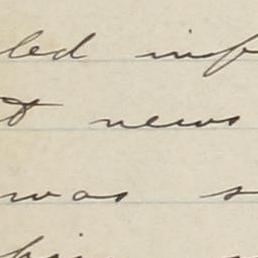 led inf
t news
was s